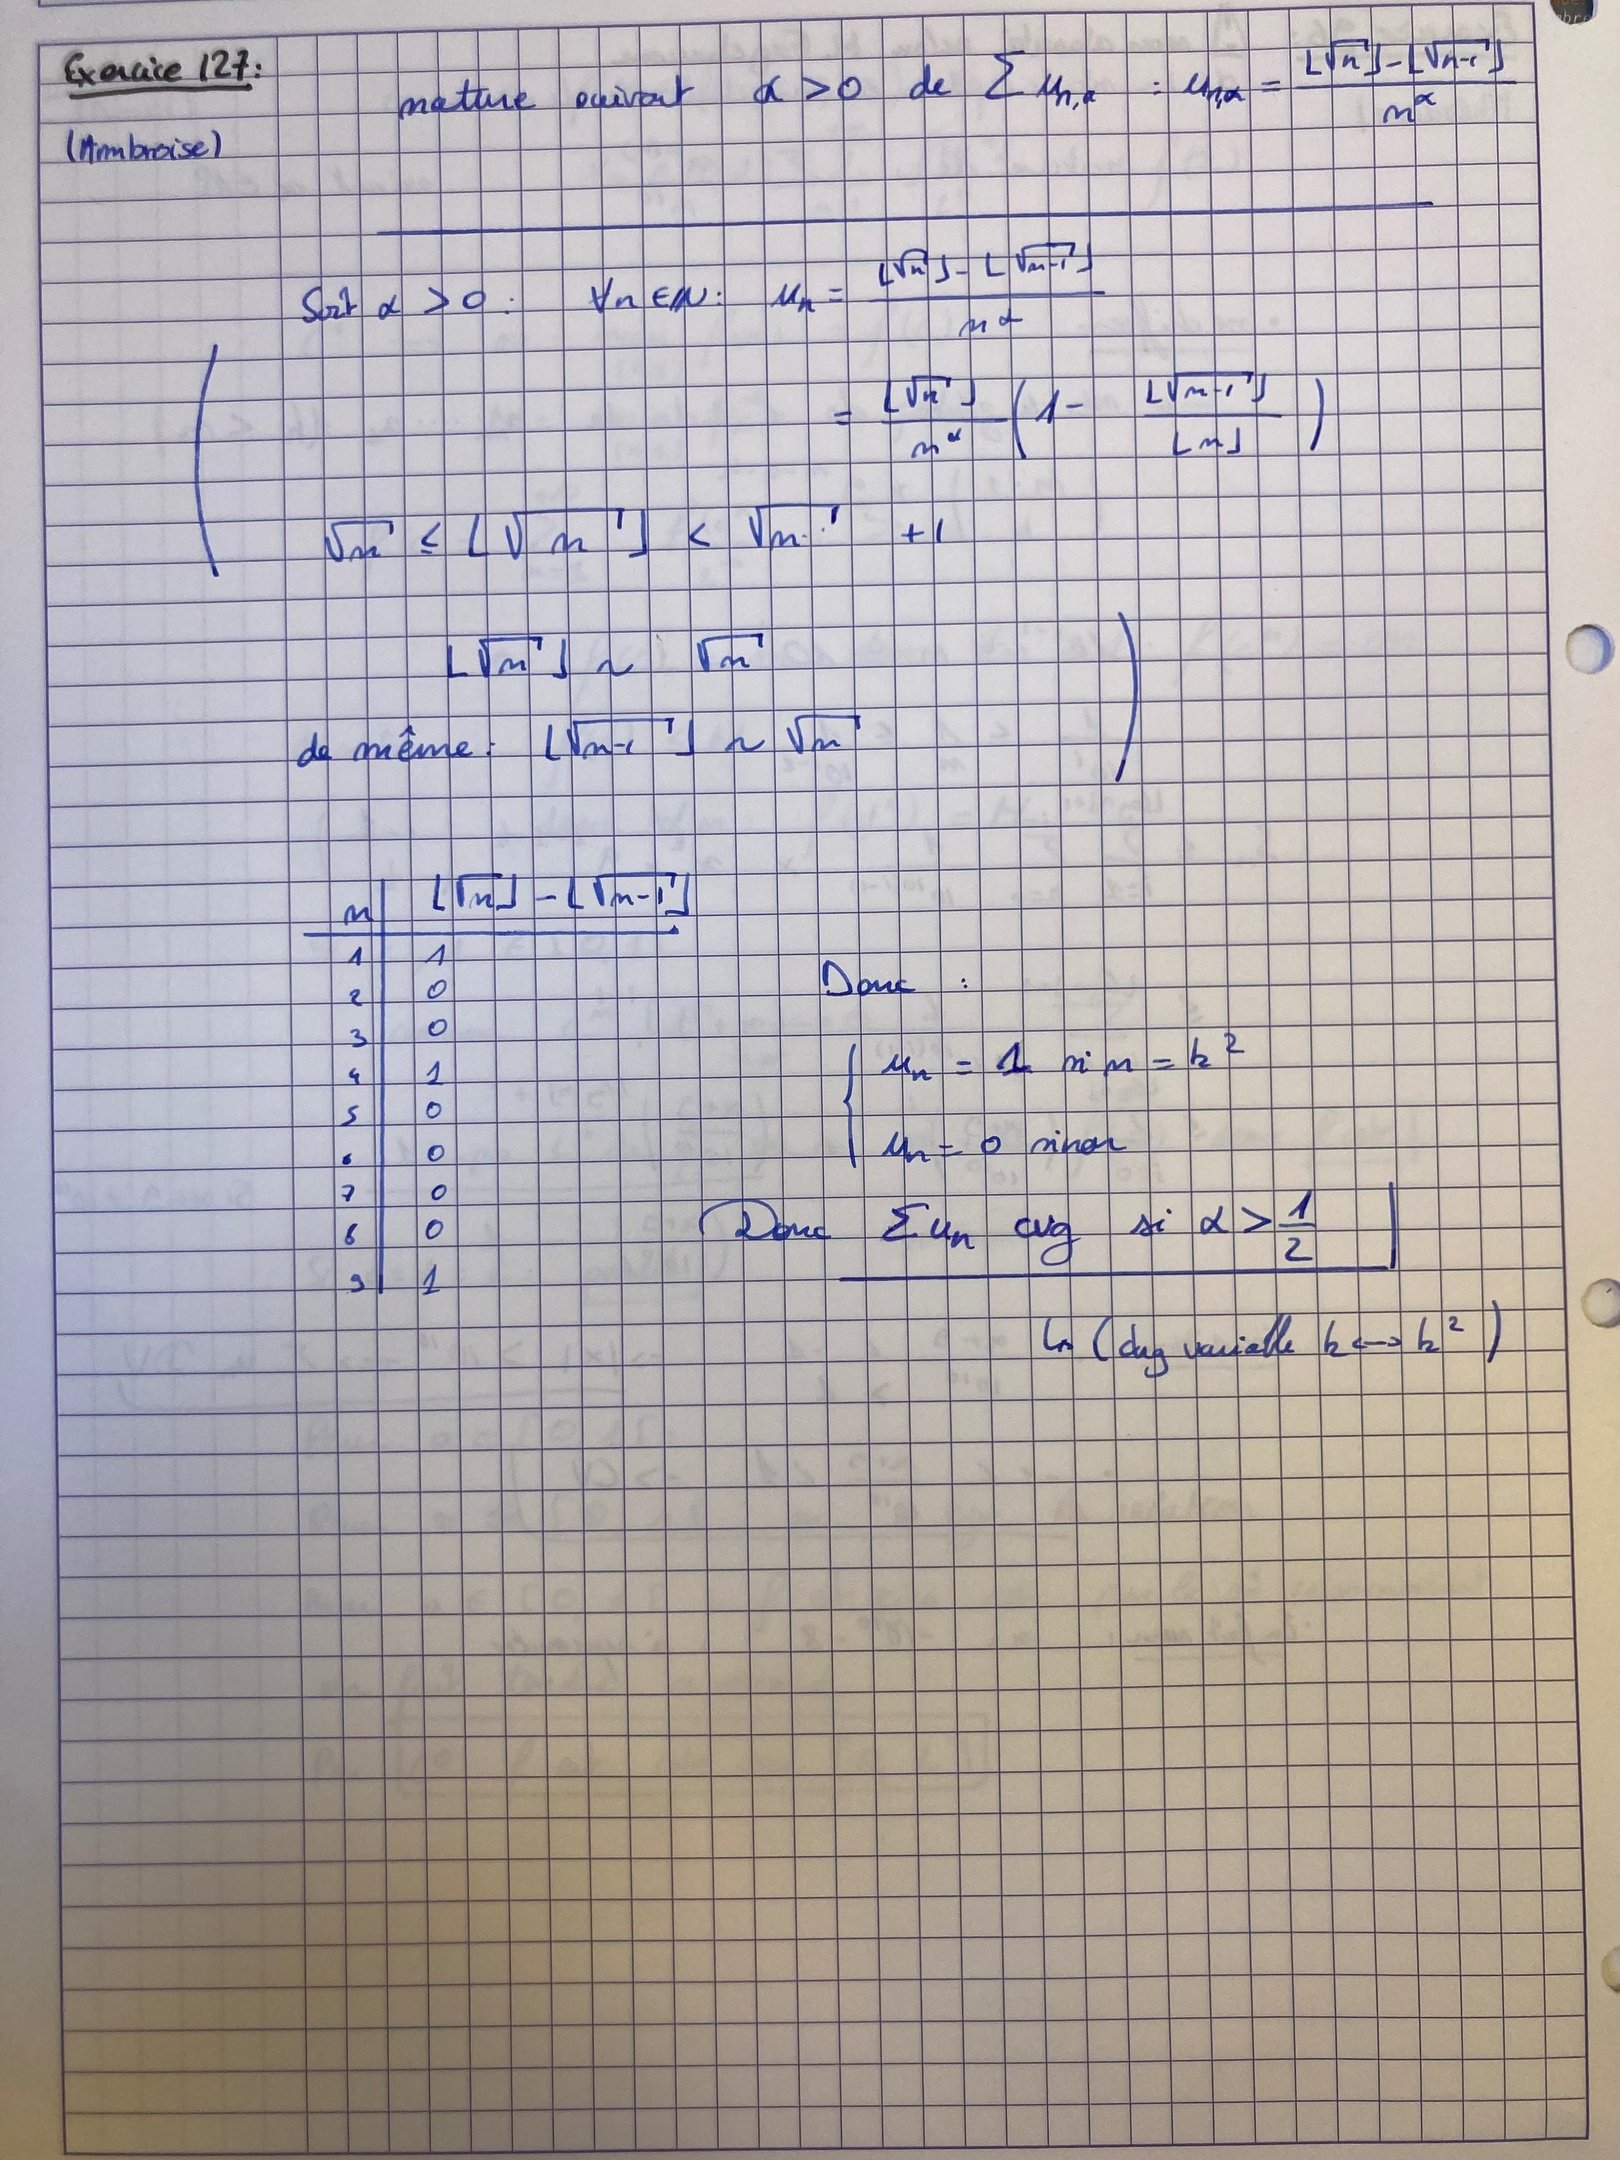 Exercice 127:
(Ambroise)
nature suivant α > 0 de Σ u_{n,α} : u_{n,α} = (⌊√n⌋ - ⌊√(n-1)⌋) / n^α
Soit α > 0 : ∀n ∈ ℕ : u_n = (⌊√n⌋ - ⌊√(n-1)⌋) / n^α
= ⌊√n⌋ / n^α (1 - ⌊√(n-1)⌋ / ⌊n⌋)
√n ≤ ⌊√n⌋ < √n + 1
⌊√n⌋ ~ √n
de même : ⌊√(n-1)⌋ ~ √n
n | ⌊√n⌋ - ⌊√(n-1)⌋
1 | 1
2 | 0
3 | 0
4 | 1
5 | 0
6 | 0
7 | 0
8 | 0
9 | 1
Donc :
u_n = 1 si n = k²
u_n = 0 sinon
Donc Σ u_n cvg si α > 1/2
↳ (chg variable k ↔ k²)